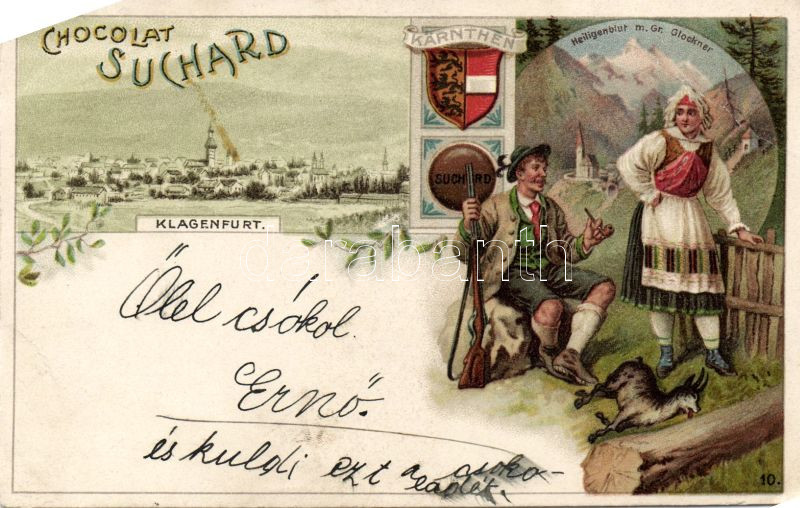 CHOCOLAT
SUCHARD
KÄRNTHEN
Heiligenblut m. Gr. Glockner
SUCHARD
KLAGENFURT.
darabanth
Ölel csókol
Ernő.
és kuldi ezt a csoko-
ládét.
10.